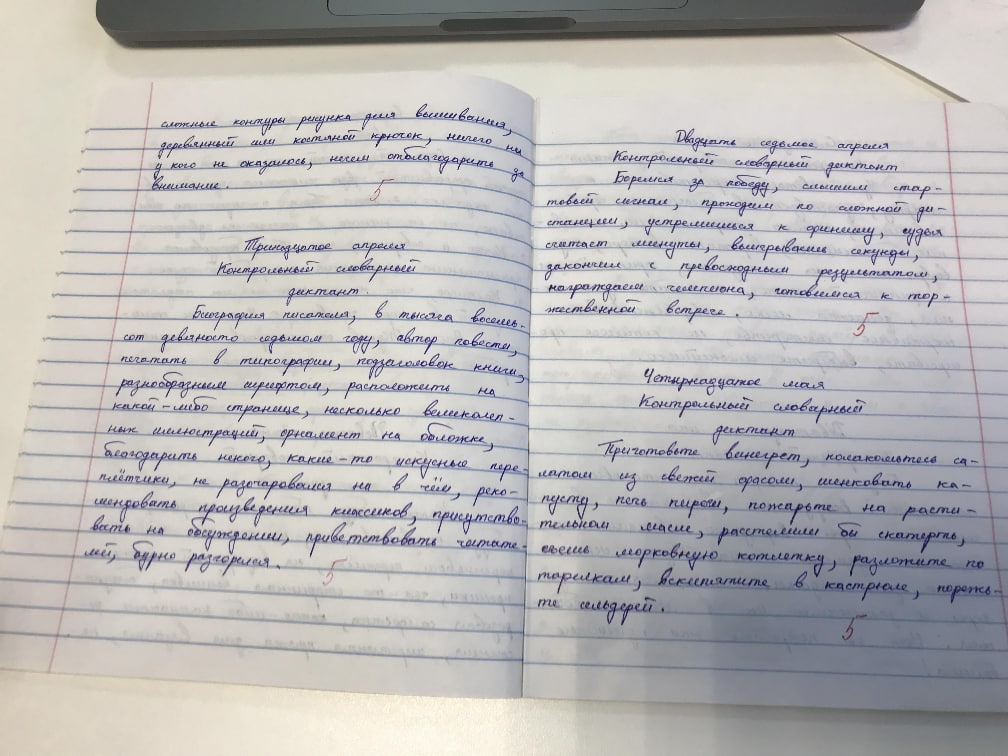 сложные контуры рисунка для вышивания,
деревянный или костяной крючок, ничего ни
у кого не оказалось, нечем отблагодарить за
внимание.
5
Тринадцатое апреля
Контрольный словарный
диктант.
Биография писателя, в тысяча восемь-
сот девяносто седьмом году, автор повести,
печатать в типографии, подзаголовок книги,
разнообразным шрифтом, расположить на
какой-либо странице, несколько великолеп-
ных иллюстраций, орнамент на обложке,
благодарить некого, какие-то искусные пере-
плётчики, не разочаровался ни в чём, реко-
мендовать произведения классиков, присутство-
вать на обсуждении, приветствовать читате-
лей, бурно разгорелся.
5
Двадцать седьмое апреля
Контрольный словарный диктант
Боремся за победу, слышим стар-
товый сигнал, проходим по сложной ди-
станции, устремишься к финишу, судья
считает минуты, выигрываешь секунды,
закончил с превосходным результатом,
награждаем чемпиона, готовимся к тор-
жественной встрече.
5
Четырнадцатое мая
Контрольный словарный
диктант
Приготовьте винегрет, полакомьтесь са-
латом из свежей фасоли, шинковать ка-
пусту, печь пироги, пожарьте на расти-
тельном масле, расстелили бы скатерть,
съешь морковную котлетку, разложите по
тарелкам, вскипятите в кастрюле, порежь-
те сельдерей.
5